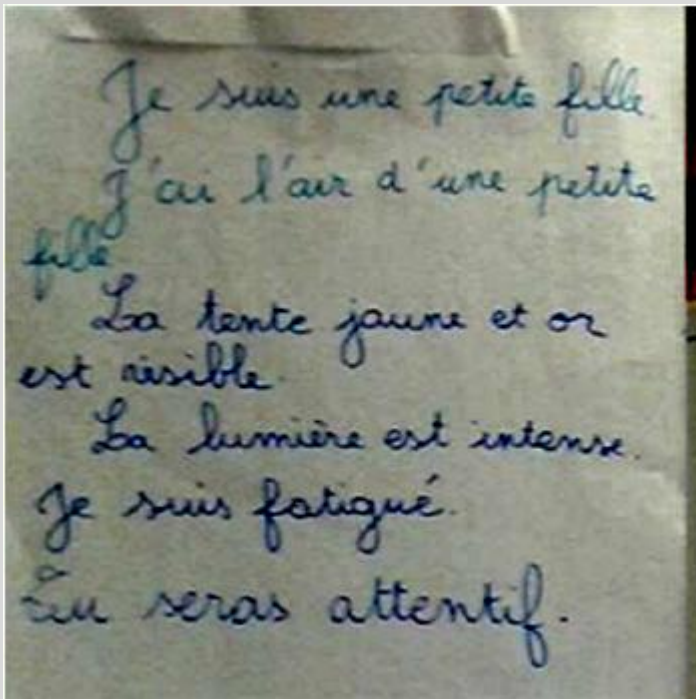 Je suis une petite fille.
J'ai l'air d'une petite
fille
La tente jaune et or
est risible.
La lumière est intense.
Je suis fatigué.
Tu seras attentif.